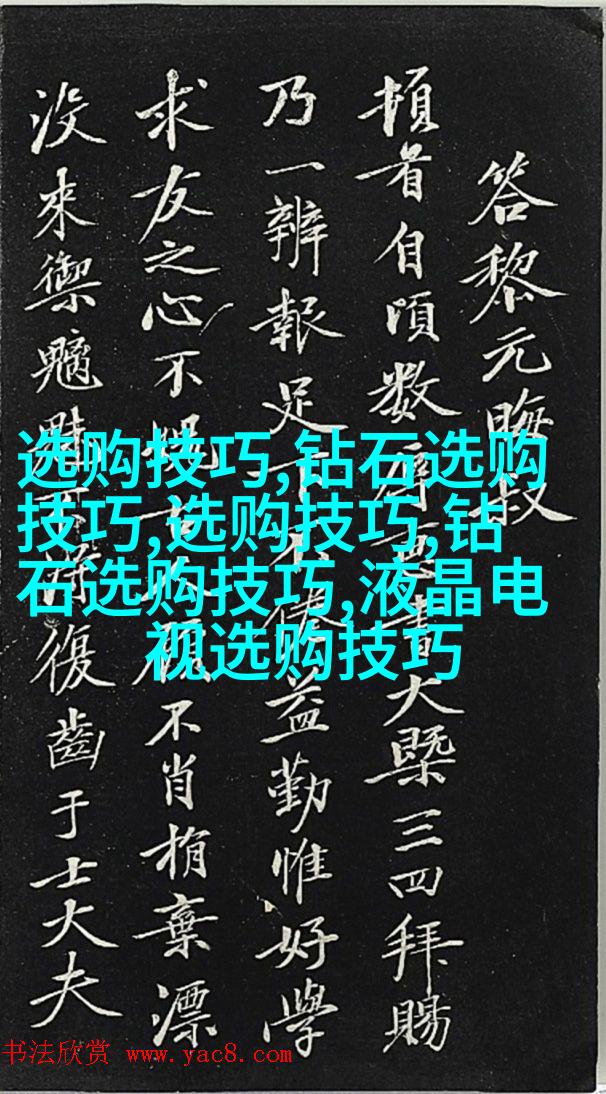 答黎元晦叔
頓首自頃数辱惠書大槩三四拜賜
乃一辨報足下不倦益勤惟好學
求友之心不愧古人顧不肖捐棄漂
没來禦魑魅不得復齒于士大夫
选购技巧,钻石选购
技巧,选购技巧,钻
石选购技巧,液晶电
视选购技巧
书法欣赏 www.yac8.com